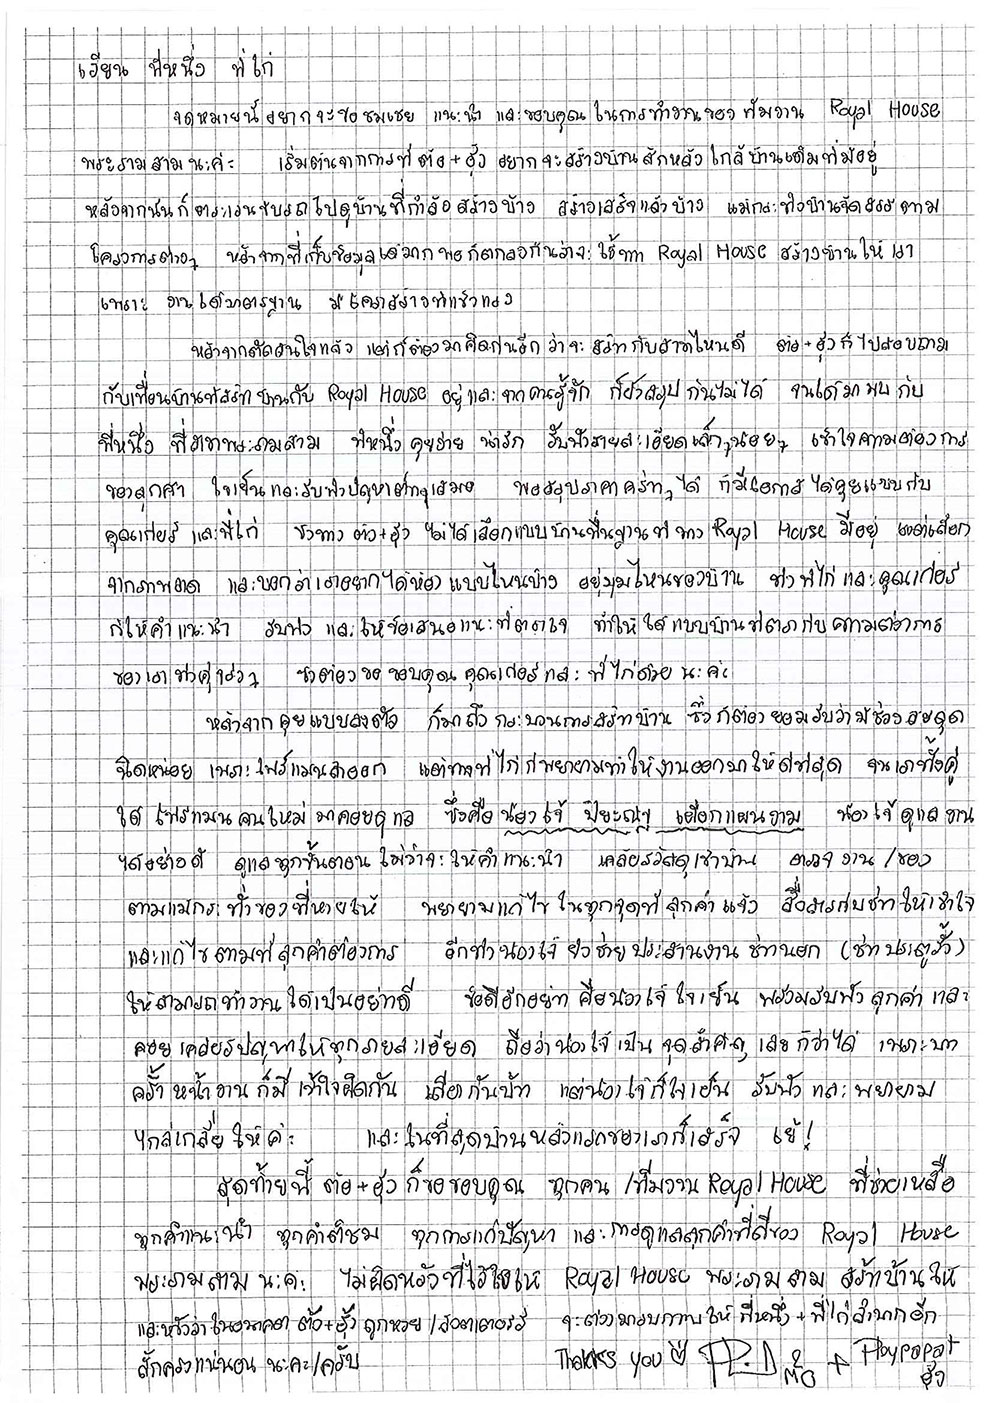 เรียน พี่หนึ่ง พี่ไก่
จดหมายนี้อยากจะขอชมเชย แนะนำ และขอบคุณในการทำงานของทีมงาน Royal House
พระรามสามนะค่ะ เริ่มต้นจากการที่ ต้อ+ฮุ้ง อยากจะสร้างบ้านสักหลังใกล้บ้านเดิมที่มีอยู่
หลังจากนั้นก็ตระเวนขับรถไปดูบ้านที่กำลังสร้างบ้าง สร้างเสร็จแล้วบ้าง แม้กระทั่งบ้านจัดสรรตาม
โครงการต่างๆ หลังจากที่เก็บข้อมูลได้มากพอก็ตกลงกันว่าจะใช้ทาง Royal House สร้างบ้านให้เรา
เพราะ งานได้มาตรฐาน มีโครงสร้างที่แข็งแรง
หลังจากตัดสินใจแล้ว แต่ก็ต้องมาคิดกันอีกว่าจะสร้างกับสาขาไหนดี ต้อ+ฮุ้งก็ไปสอบถาม
กับเพื่อนบ้านที่สร้างบ้านกับ Royal House อยู่และจากคนรู้จัก ก็ยังสรุปกันไม่ได้ จนได้มาพบกับ
พี่หนึ่ง ที่สาขาพระรามสาม พี่หนึ่งคุยง่าย น่ารัก รับฟังรายละเอียดเล็กๆน้อยๆ เข้าใจความต้องการ
ของลูกค้า ใจเย็นและรับฟังปัญหาต่างๆเสมอ พอสรุปราคาคร่าวๆได้ ก็มีโอกาสได้คุยแบบกับ
คุณเกอร์และพี่ไก่ ซึ่งทาง ต้อ+ฮุ้ง ไม่ได้เลือกแบบบ้านพื้นฐานที่ทาง Royal House มีอยู่ แต่เลือก
จากภาพวาด และบอกว่าเราอยากได้ห้องแบบไหนบ้าง อยู่มุมไหนของบ้าน ทั้งพี่ไก่และคุณเกอร์
ก็ให้คำแนะนำ รับฟัง และให้ข้อเสนอแนะที่ตรงใจ ทำให้ได้แบบบ้านที่ตรงกับความต้องการ
ของเราทั้งคู่จริงๆ ซึ่งต้องขอขอบคุณคุณเกอร์และพี่ไก่ด้วยนะค่ะ
หลังจากคุยแบบลงตัว ก็มาถึงกระบวนการสร้างบ้าน ซึ่งก็ต้องยอมรับว่ามีช่วงสะดุด
นิดหน่อย เพราะโฟร์แมนลาออก แต่ทางพี่ไก่ก็พยายามทำให้งานออกมาให้ดีที่สุด จนเราทั้งคู่
ได้โฟร์แมนคนใหม่มาคอยดูแล ซึ่งคือ น้องโจ้ ปิยะณัฐ เผือกแผนงาม น้องโจ้ดูแลงาน
ได้อย่างดี ดูแลทุกขั้นตอน ไม่ว่าจะให้คำแนะนำ เคลียร์วัสดุเข้าบ้าน ตรวจงาน/ของ
ตามแม้กระทั่งของที่หายให้ พยายามแก้ไขในทุกจุดที่ลูกค้าแจ้ง สื่อสารกับช่างให้เข้าใจ
และแก้ไขตามที่ลูกค้าต้องการ อีกทั้งน้องโจ้ ยังช่วยประสานงานช่างนอก (ช่างประตูรั้ว)
ให้สามารถทำงานได้เป็นอย่างดี ข้อดีอีกอย่าง คือน้องโจ้ ใจเย็น พร้อมรับฟังลูกค้าและ
คอยเคลียร์ปัญหาให้ทุกรายละเอียด ถือว่าน้องโจ้เป็นจุดสำคัญเลยก็ว่าได้ เพราะบาง
ครั้งหน้างานก็มีเข้าใจผิดกัน เถียงกันบ้าง แต่น้องโจ้ก็ใจเย็น รับฟัง และพยายาม
ไกล่เกลี่ยให้ค่ะ และในที่สุดบ้านหลังแรกของเราก็เสร็จ เย้!
สุดท้ายนี้ ต้อ+ฮุ้งก็ขอขอบคุณ ทุกคน/ทีมงาน Royal House ที่ช่วยเหลือ
ทุกคำแนะนำ ทุกคำติชม ทุกการแก้ปัญหา และการดูแลลูกค้าที่ดีของ Royal House
พระรามสามนะค่ะ ไม่ผิดหวังที่ไว้ใจให้ Royal House พระรามสามสร้างบ้านให้
และหวังว่าในอนาคต ต้อ+ฮุ้ง ถูกหวย/ลอตเตอรรี่ จะต้องมารบกวนให้พี่หนึ่ง+พี่ไก่ลำบากอีก
สักครั้งแน่นอนนะคะ/ครับ Thanks you + Ploypapat
ฮุ้ง